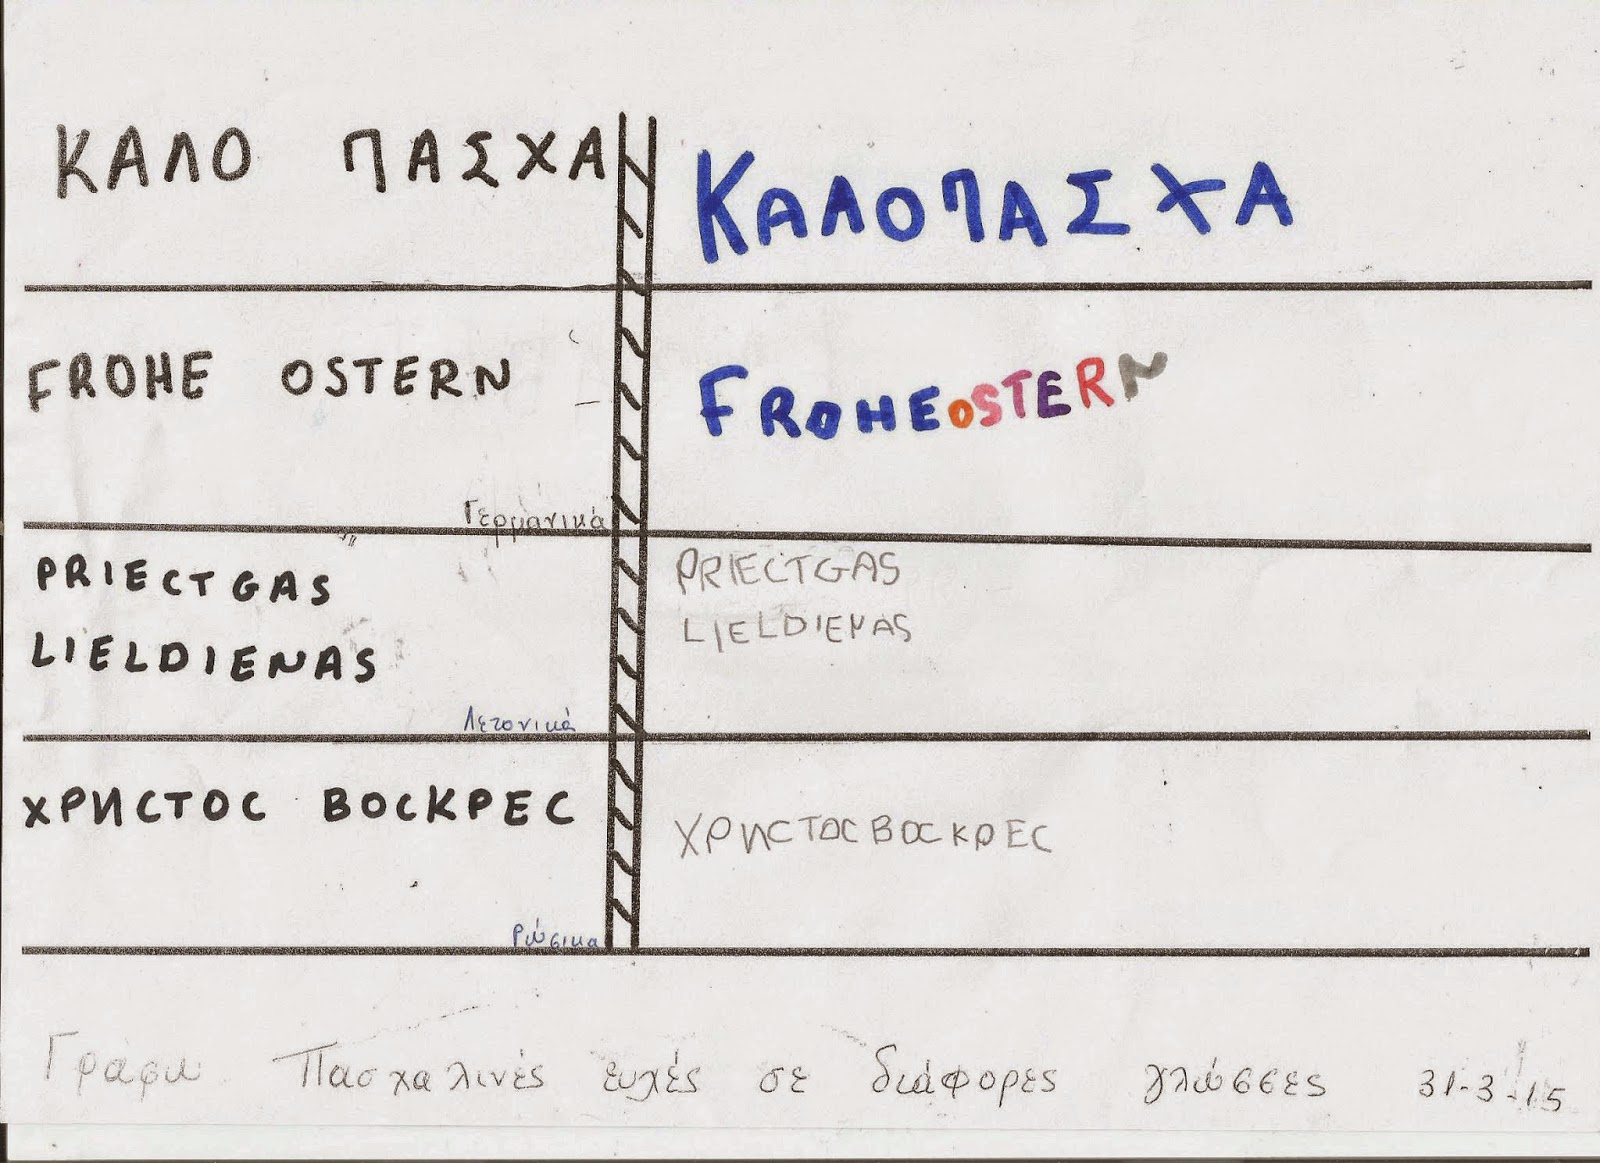 ΚΑΛΟ ΠΑΣΧΑ
ΚΑΛΟΠΑΣΧΑ
FROHE OSTERN
FROHEOSTERN
Γερμανικά
PRIECTGAS
LIELDIENAS
PRIECTGAS
LIELDIENAS
Λετονικά
ХРИСТОС ВОСКРЕС
ХРИСТОСВОСКРЕС
Ρώσικα
Γράφω Πασχαλινές ευχές σε διάφορες γλώσσες 31-3-15